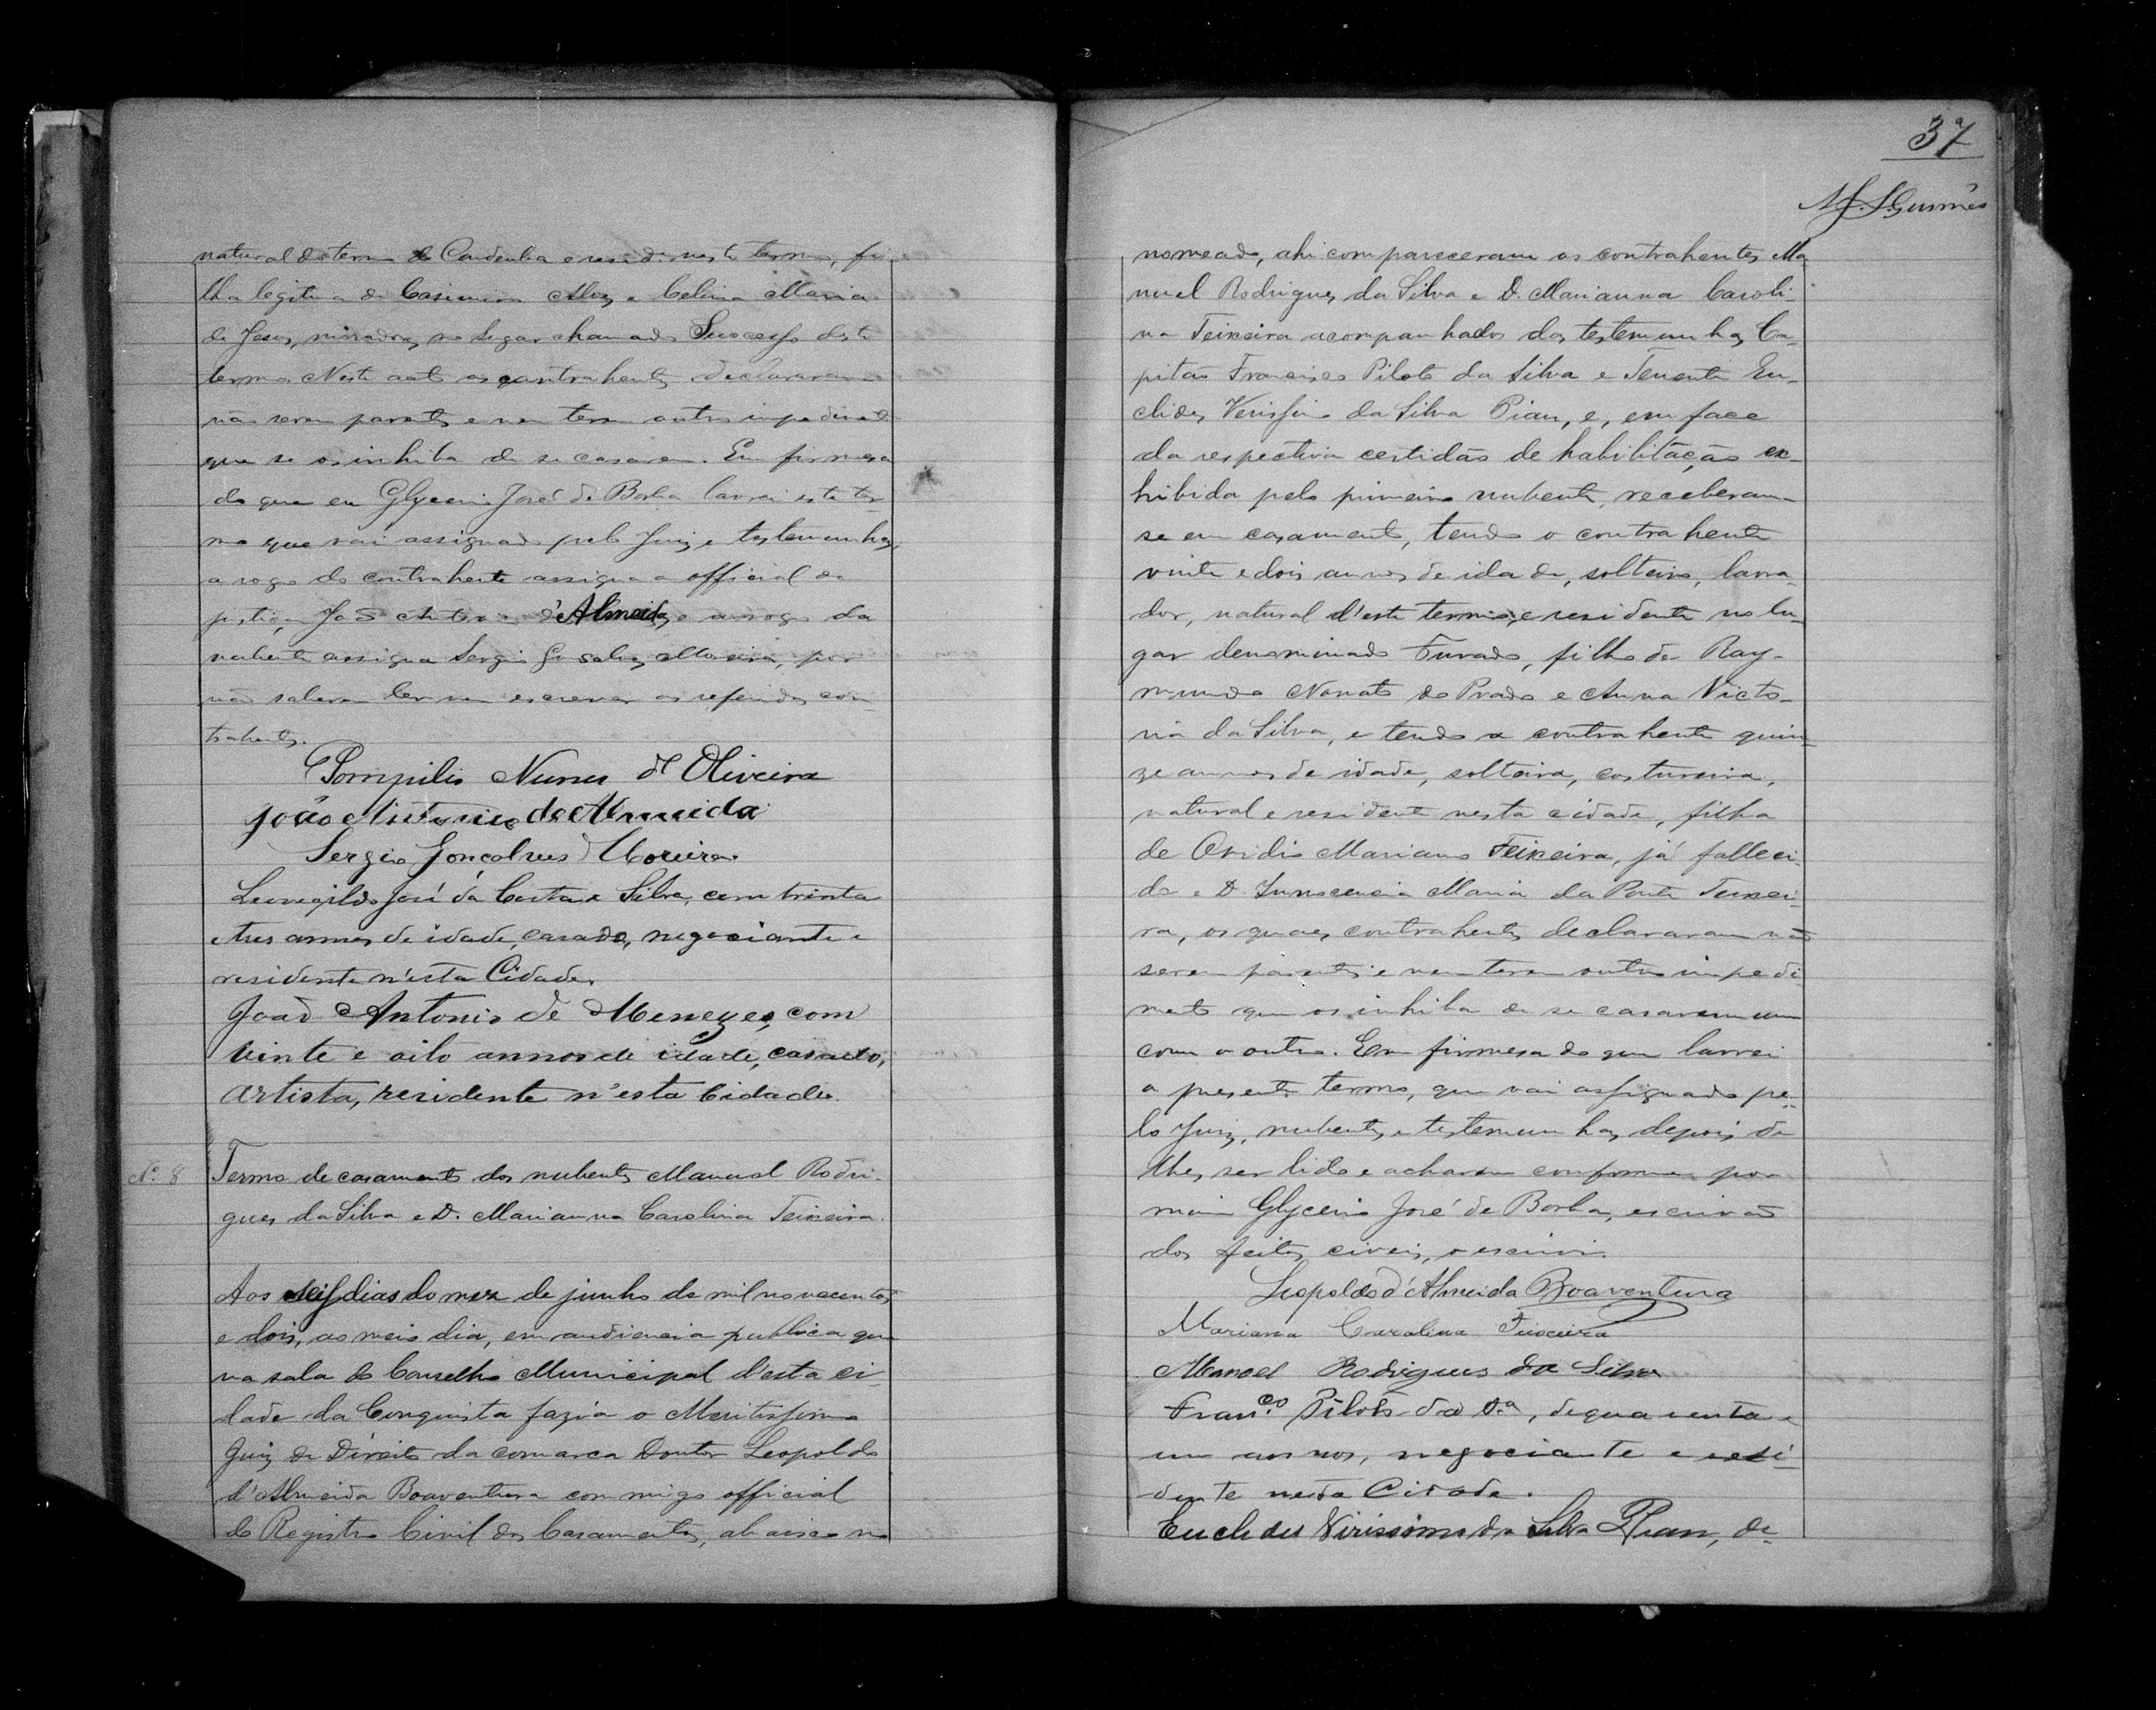 natural do termo de Condeuba e reside neste termo, fi
lha legitima de Casimiro Alves e Celina Maria
de Jesus, moradores no lugar chamado Successo deste
termo. Neste acto os contrahentes declararam
não serem parentes e nem terem outro impedimento
que se os inhiba de se casarem. Em firmesa
do que eu Glycerio José de Borba lavrei este ter
mo que vai assignado pelo Juiz e testemunhas,
a rogo do contrahente assigna o official de
justiça João Antonio d'Almeida, e a rogo da
nubente assigna Sergio Gonsalves Moreira, por
não saberem ler nem escrever os referidos con
trahentes.
Pompilio Nunes de Oliveira
João Antonio de Almeida
Sergio Gonçalves Moreira
Leovegildo José da Costa e Silva, com trinta
e tres annos de idade, casado, negociante e
residente n'esta Cidade.
João Antonio de Menezes, com
vinte e oito annos de idade, casado,
artista, residente n'esta Cidade.
Nº 8 Termo de casamento dos nubentes Manuel Rodri-
gues da Silva e D. Marianna Carolina Teixeira.
Aos seis dias do mez de junho de mil novecentos
e dois, ao meio dia, em audiencia publica que
na sala do Conselho Municipal d'esta ci
dade da Conquista fazia o Meritissimo
Juiz de Direito da comarca Doutor Leopoldo
d'Almeida Boaventura commigo official
do Registro Civil dos Casamentos, abaixo no
37
nomeado, ahi compareceram os contrahentes Ma
nuel Rodrigues da Silva e D. Marianna Caroli-
na Teixeira acompanhados das testemunhas Ca-
pitão Francisco Piloto da Silva e Tenente Eu-
clides Verissimo da Silva Pian, e, em face
da respectiva certidão de habilitação ex-
hibida pelo primeiro nubente, receberam-
se em casamento, tendo o contrahente
vinte e dois annos de idade, solteiro, lavra-
dor, natural d'este termo, e residente no lu-
gar denominado Furado, filho de Ray-
mundo Nonato do Prado e Anna Victo-
ria da Silva, e tendo a contrahente quin-
ze annos de idade, solteira, costureira,
natural e residente nesta cidade, filha
de Ovidio Mariano Teixeira, já falleci-
do e D. Innocencia Maria da Ponte Teixei-
ra, os quaes contrahentes declararam não
serem parentes e nem terem outro impedi
mento que os inhiba de se casarem um
com o outro. Em firmesa do que lavrei
o presente termo, que vai assignado pe-
lo Juiz, nubentes e testemunhas depois de
lhes ser lido e acharem conforme por
mim Glycerio José de Borba, escrivão
dos feitos civeis, o escrivi.
Leopoldo d'Almeida Boaventura
Mariana Carolina Teixeira
Manoel Rodrigues da Silva
Fran.co Piloto da S.a, de quarenta e
um annos, negociante e resi-
dente nesta Cidade.
Euclides Virissimo da Silva Pian, de-